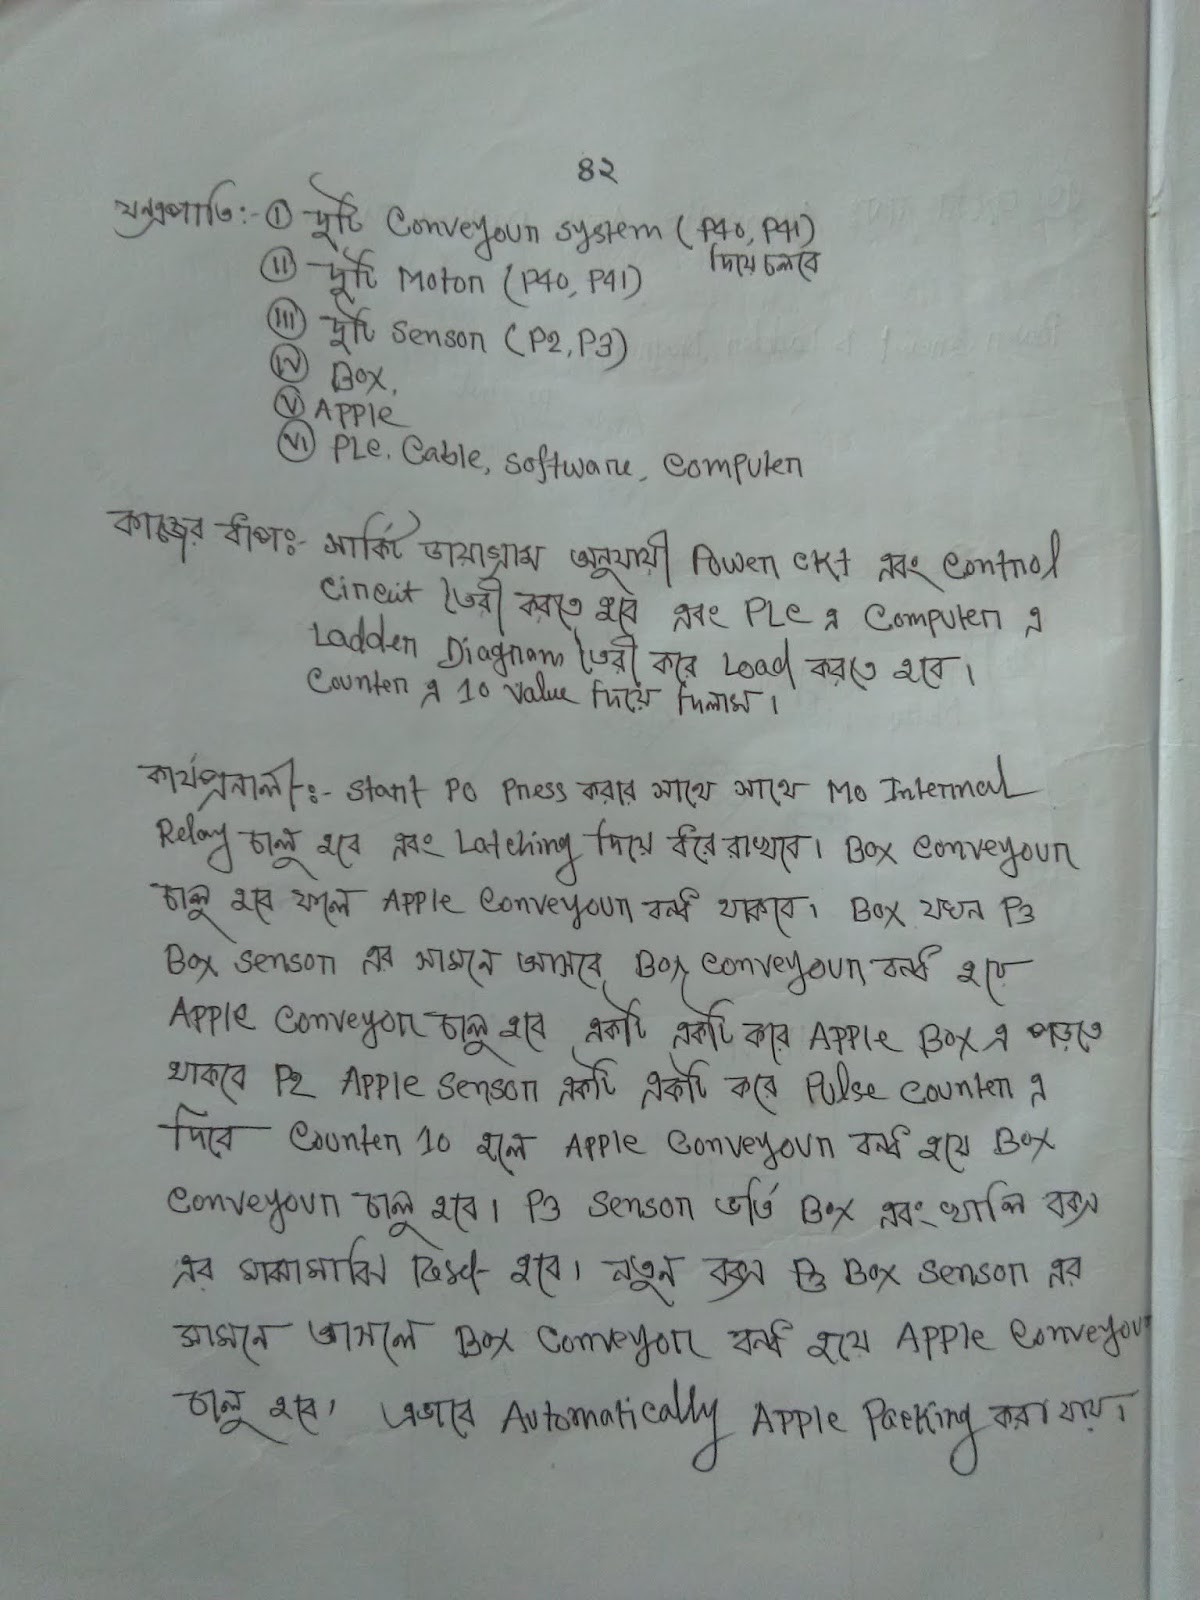 ৪২
যন্ত্রপাতি:- (I) দুটি Conveyour system (P40, P41)
দিয়ে চলবে
(II) দুটি Motor (P40, P41)
(III) দুটি Sensor (P2, P3)
(IV) Box,
(V) Apple
(VI) PLC, Cable, Software, Computer
কাজের ধাপঃ- সার্কিট ডায়াগ্রাম অনুযায়ী Power CKt এবং Control
Circuit তৈরী করতে হবে এবং PLC এ Computer এ
Ladder Diagram তৈরী করে Load করতে হবে।
Counter এ 10 Value দিয়ে দিলাম।
কার্যপ্রনালীঃ- Start P0 Press করার সাথে সাথে M0 Internal
Relay চালু হবে এবং Latching দিয়ে ধরে রাখবে। Box Conveyour
চালু হবে ফলে Apple Conveyour বন্ধ থাকবে। Box যখন P3
Box Sensor এর সামনে আসবে Box Conveyour বন্ধ হয়ে
Apple Conveyor চালু হবে একটি একটি করে Apple Box এ পড়তে
থাকবে P2 Apple Sensor একটি একটি করে Pulse Counter এ
দিবে Counter 10 হলে Apple Conveyour বন্ধ হয়ে Box
Conveyour চালু হবে। P3 Sensor ভর্তি Box এবং খালি বক্স
এর মাঝামাঝি Reset হবে। নতুন বক্স P3 Box Sensor এর
সামনে আসলে Box Conveyor বন্ধ হয়ে Apple Conveyour
চালু হবে। এভাবে Automatically Apple Packing করা যায়।